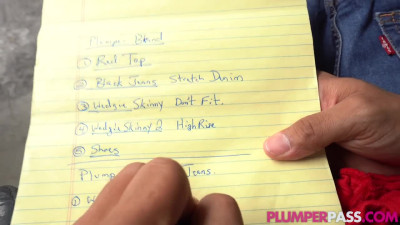 ① Red Top
② Black Jeans Stretch Denim
③ Wedgie Skinny Don't Fit.
④ Wedgie Skinny 2 High Rise
⑤ Shoes
Plump Jeans.
①
PLUMPERPASS.COM